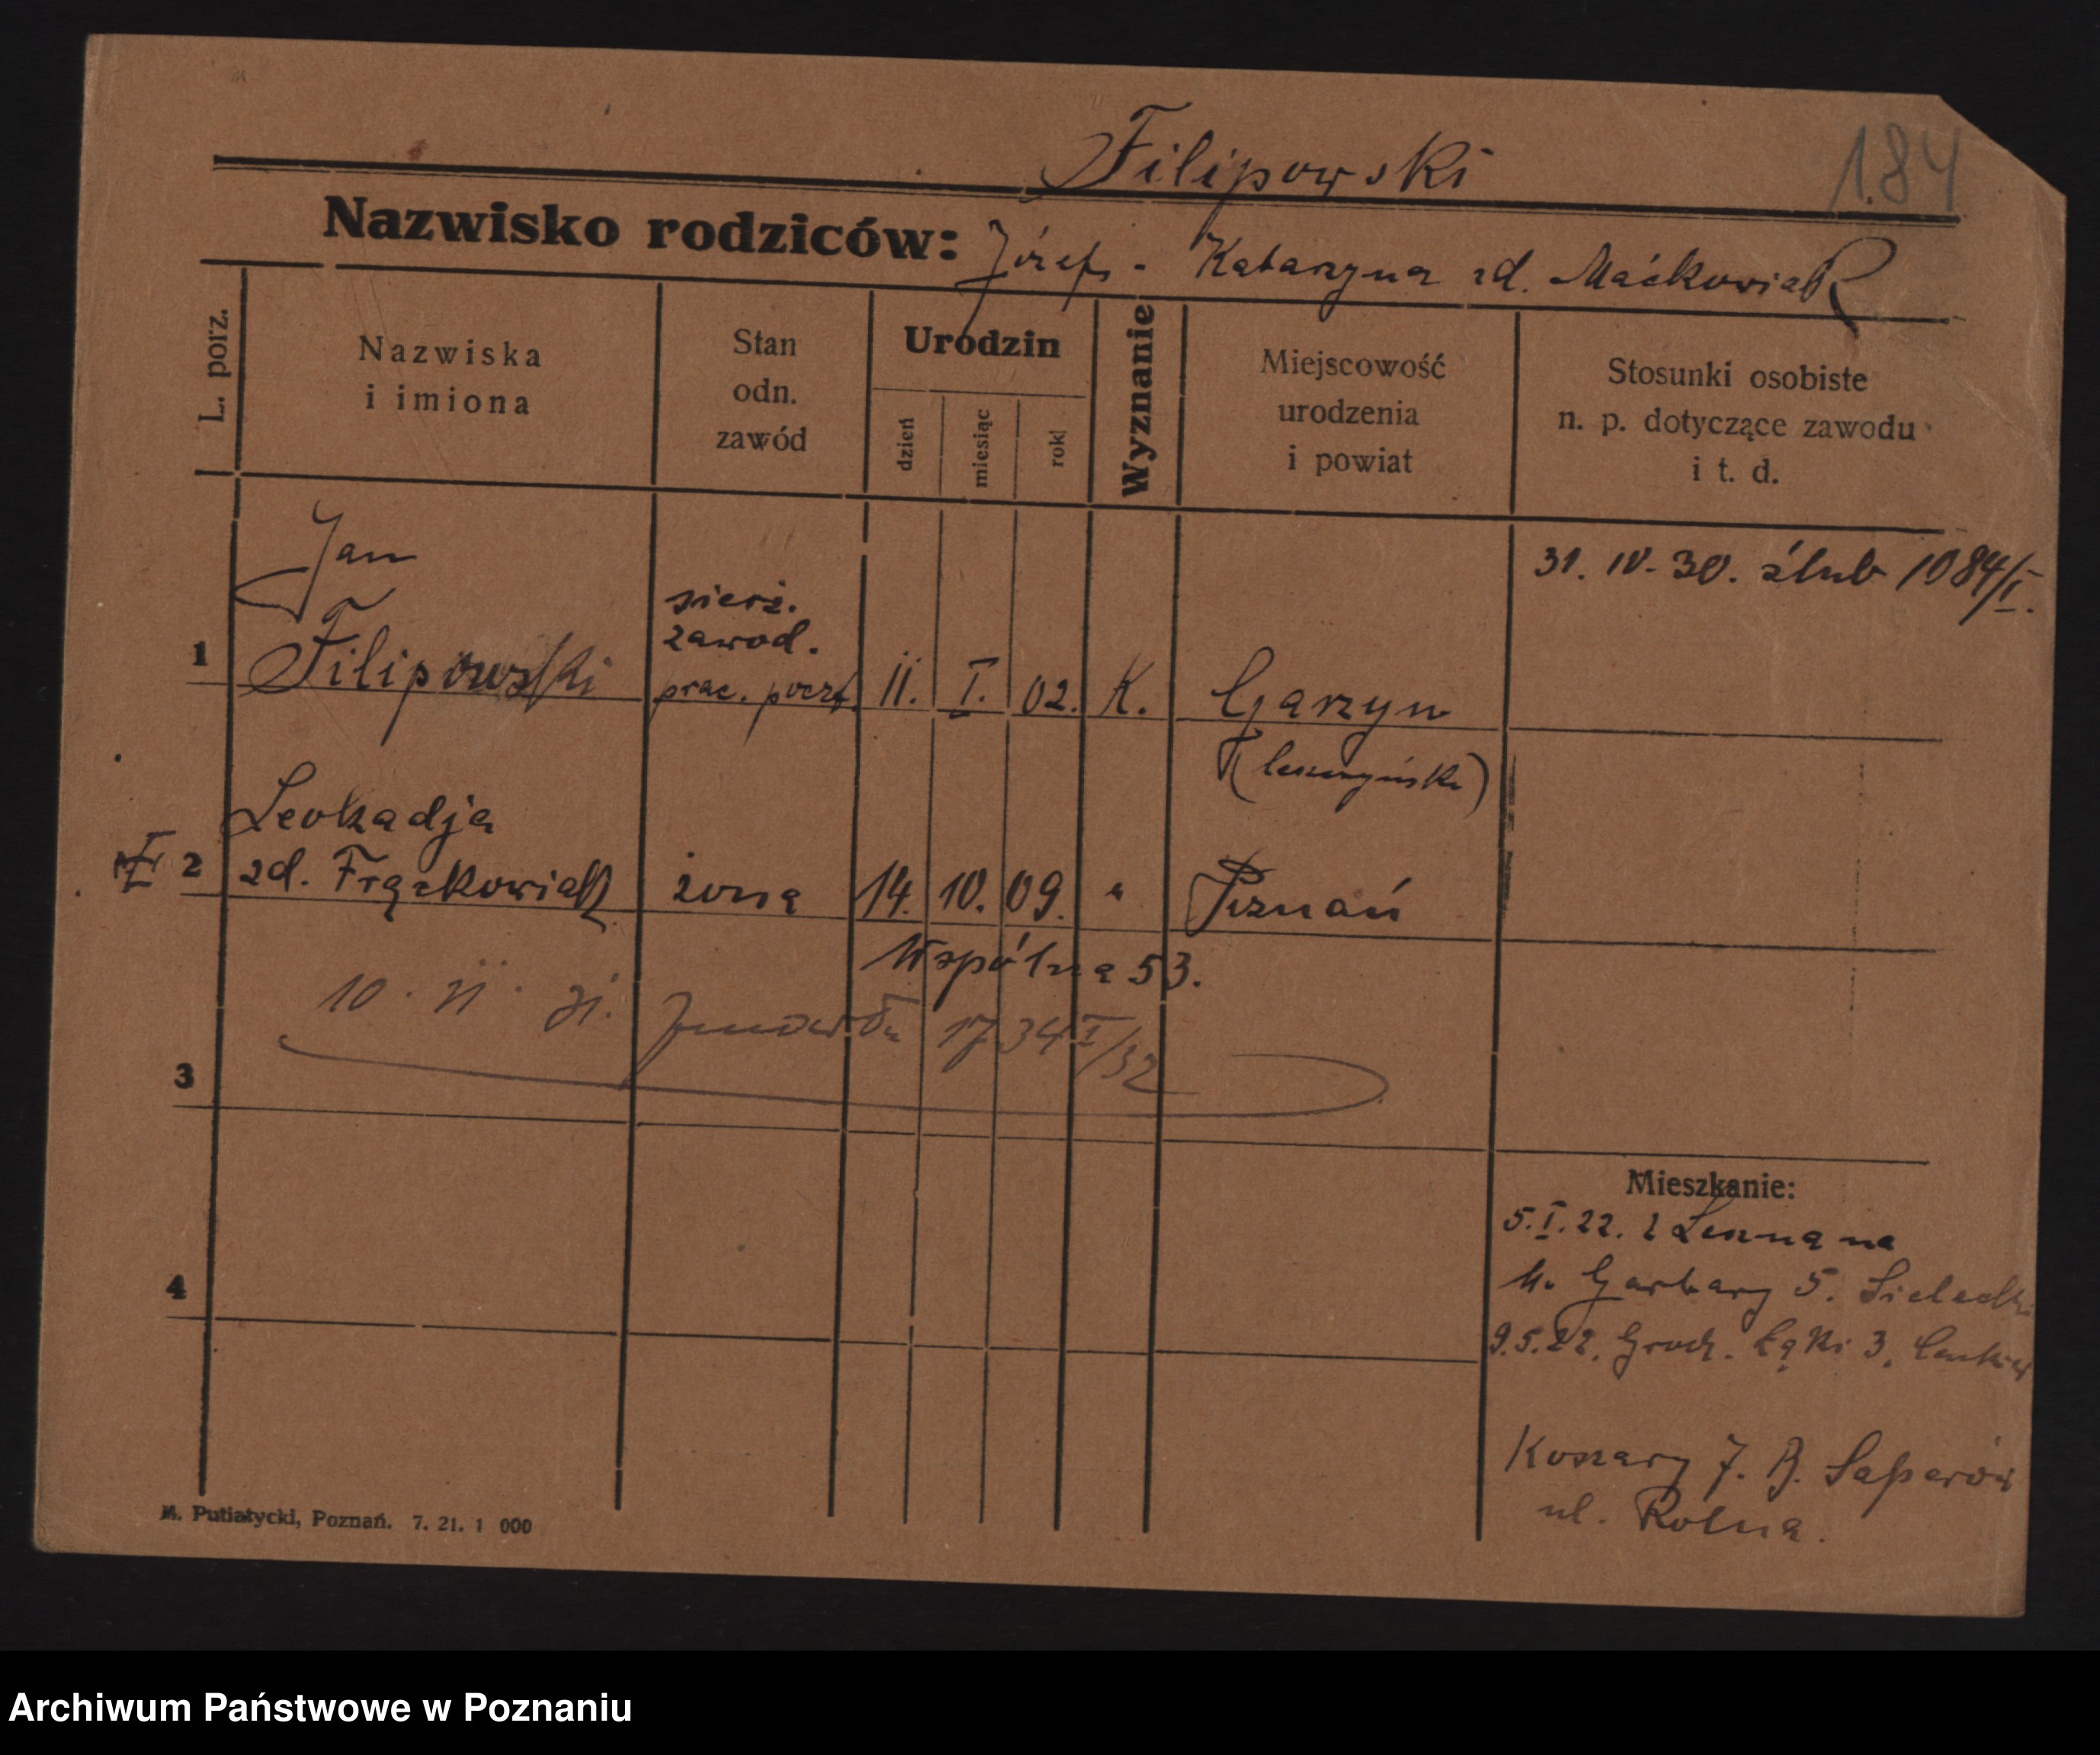 Filipowski
184
Nazwisko rodziców: Józef - Katarzyna zd. Maćkowiak
L. porz.
Nazwiska
i imiona
Stan
odn.
zawód
Urodzin
dzień
miesiąc
rok
Wyznanie
Miejscowość
urodzenia
i powiat
Stosunki osobiste
n. p. dotyczące zawodu
i t. d.
31. IV. 30. ślub 1084/I.
Jan
1 Filipowski
sierż.
zawod.
prac. poczt.
11. I. 02. K. Garzyn
(leszczyńsk)
Leokadja
2 zd. Frąckowiak żona 14. 10. 09. " Poznań
Wspólna 53.
10. 11. 31. 1734 I/32
3
4
Mieszkanie:
5.I.22. z Leszna na
M. Garbary 5.
9.5.22. Groch. Łąki 3.
Koszary 7. B. Saperów
ul. Rolna.
M. Putiatycki, Poznań. 7. 21. 1 000
Archiwum Państwowe w Poznaniu